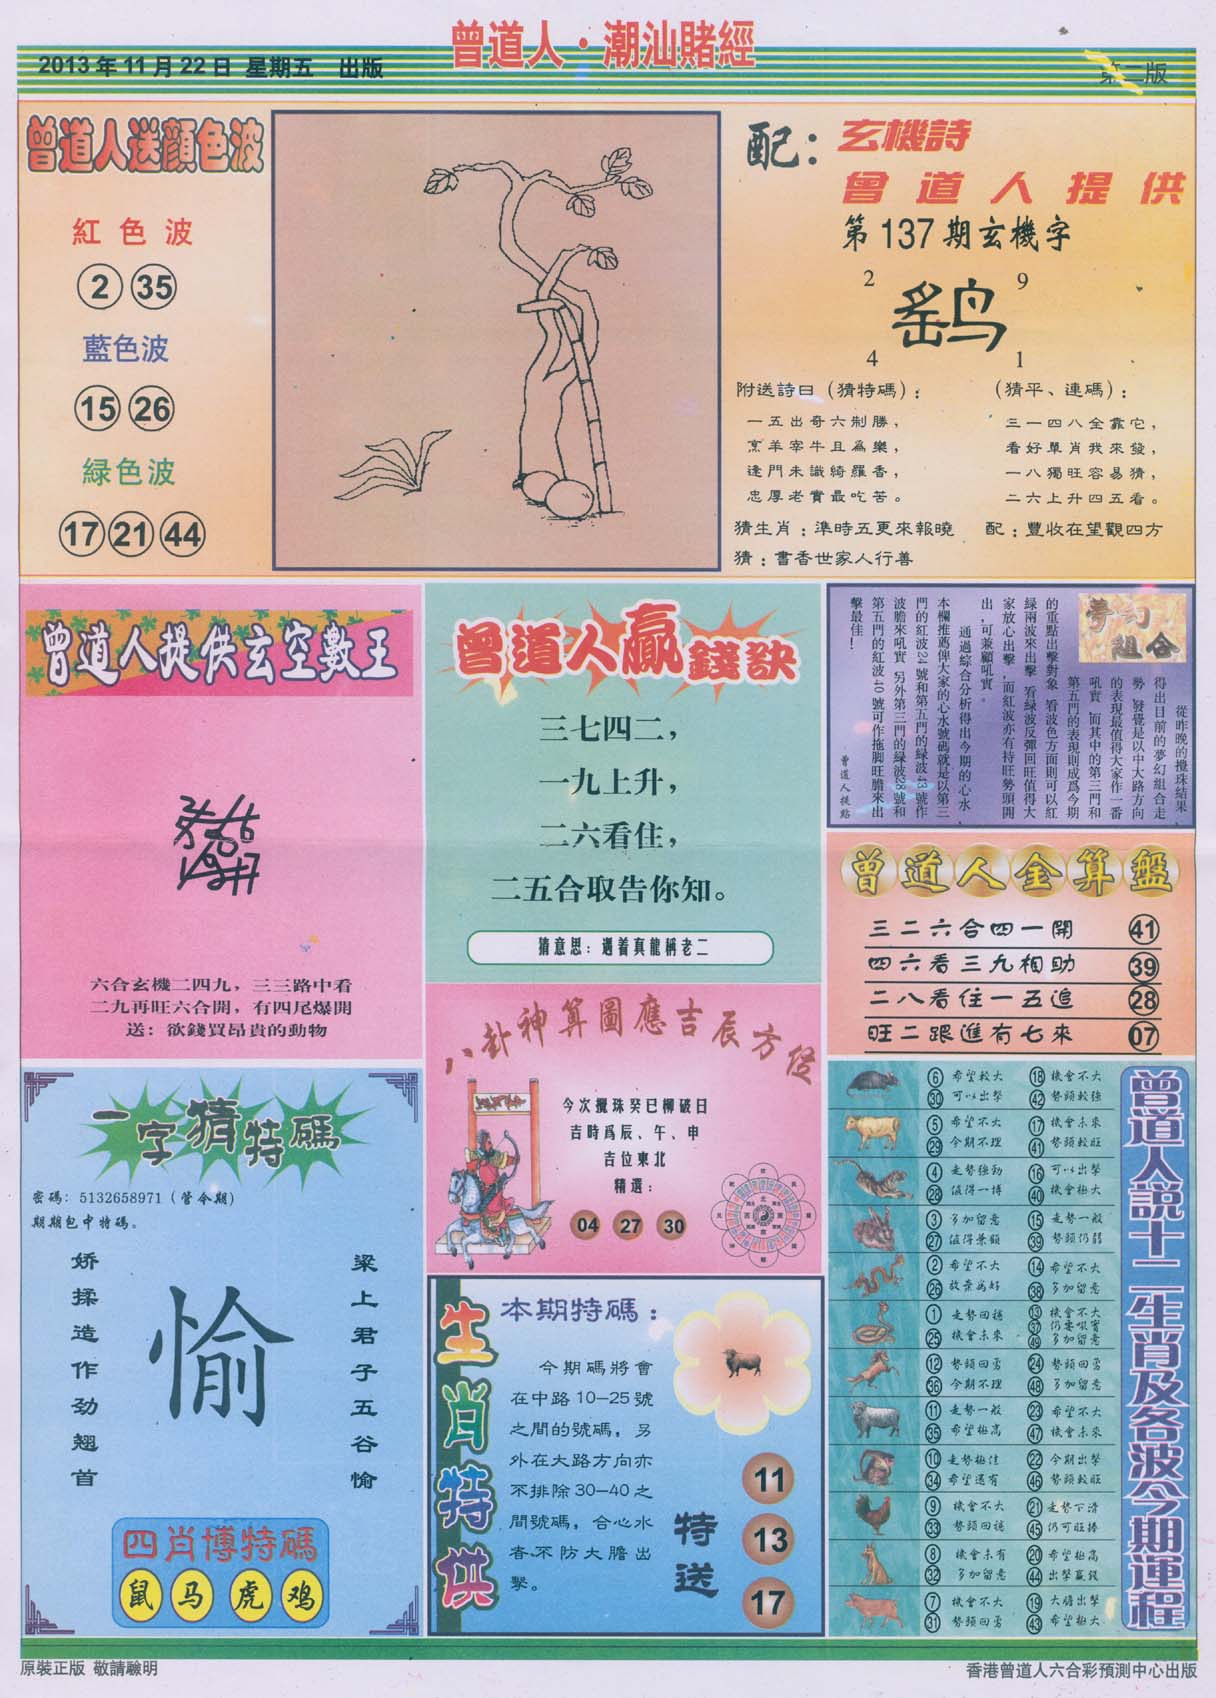 曾道人·潮汕賭經
2013年11月22日 星期五 出版
第二版
曾道人送顏色波
紅色波
2 35
藍色波
15 26
緑色波
17 21 44
配：玄機詩
曾道人提供
第137期玄機字
2 9
鹞
4 1
附送詩曰（猜特碼）：
一五出奇六制勝，
烹羊宰牛且爲樂，
逢門未識綺羅香，
忠厚老實最吃苦。
（猜平、連碼）：
三一四八全靠它，
看好單肖我來發，
一八獨旺容易猜，
二六上升四五看。
猜生肖：準時五更來報曉 配：豐收在望觀四方
猜：書香世家人行善
曾道人提供玄空數王
六合玄機二四九，三三路中看
二九再旺六合開，有四尾爆開
送：欲錢買昂貴的動物
曾道人贏錢訣
三七四二，
一九上升，
二六看住，
二五合取告你知。
猜意思：遇着真龍稱老二
夢幻組合
從昨晚的攪珠結果，
得出目前的夢幻組合走
勢，發覺是以中大路方向
的表現最值得大家作一番
吼實，而其中的第三門和
第五門的表現則成爲今期
的重點出擊對象，看波色方面則可以紅
緑兩波來出擊，看緑波反彈回旺值得大
家放心出擊，而紅波亦有持旺勢頭開
出，可兼顧吼實。
通過綜合分析得出今期的心水，
本欄推薦俾大家的心水號碼就是以第三
門的紅波24號和第五門的緑波43號作
波膽來吼實，另外第三門的緑波28號和
第五門的紅波40號可作拖脚旺膽來出
擊最佳！
曾道人提點
曾道人金算盤
三二六合四一開 41
四六看三九相助 39
二八看住一五追 28
旺二跟進有七來 07
八卦神算圖應吉辰方從
今次攪珠癸巳柳破日
吉時爲辰、午、申
吉位東北
精選：
04 27 30
一字猜特碼
密碼：5132658971（管令期）
期期包中特碼。
矫揉造作劲翘首
愉
梁上君子五谷愉
四肖博特碼
鼠 马 虎 鸡
生肖特供
本期特碼：
今期碼將會
在中路10—25號
之間的號碼，另
外在大路方向亦
不排除30—40之
間號碼，合心水
者不防大膽出
擊。
特送
11
13
17
曾道人説十二生肖及各波今期運程
6 希望較大 18 機會不大
30 可以出擊 42 勢頭較強
5 希望不大 17 機會未來
29 今期不理 41 勢頭較旺
4 走勢強勁 16 可以出擊
28 值得一博 40 機會極大
3 多加留意 15 走勢一般
27 值得兼顧 39 勢頭仍弱
2 希望不大 14 希望不大
26 放棄為好 38 多加留意
1 走勢回穩 13 機會不大
37 仍要吼實
25 機會未來 49 多加留意
12 勢頭回勇 24 勢頭回勇
36 今期不理 48 多加留意
11 走勢一般 23 希望不大
35 希望極高 47 機會未來
10 走勢極佳 22 今期出擊
34 希望還有 46 勢頭較旺
9 機會不大 21 走勢下滑
33 勢頭回穩 45 仍可旺捧
8 機會未有 20 希望極高
32 多加留意 44 出擊贏錢
7 機會不大 19 大膽出擊
31 勢頭回勇 43 希望極大
原裝正版 敬請驗明
香港曾道人六合彩預測中心出版